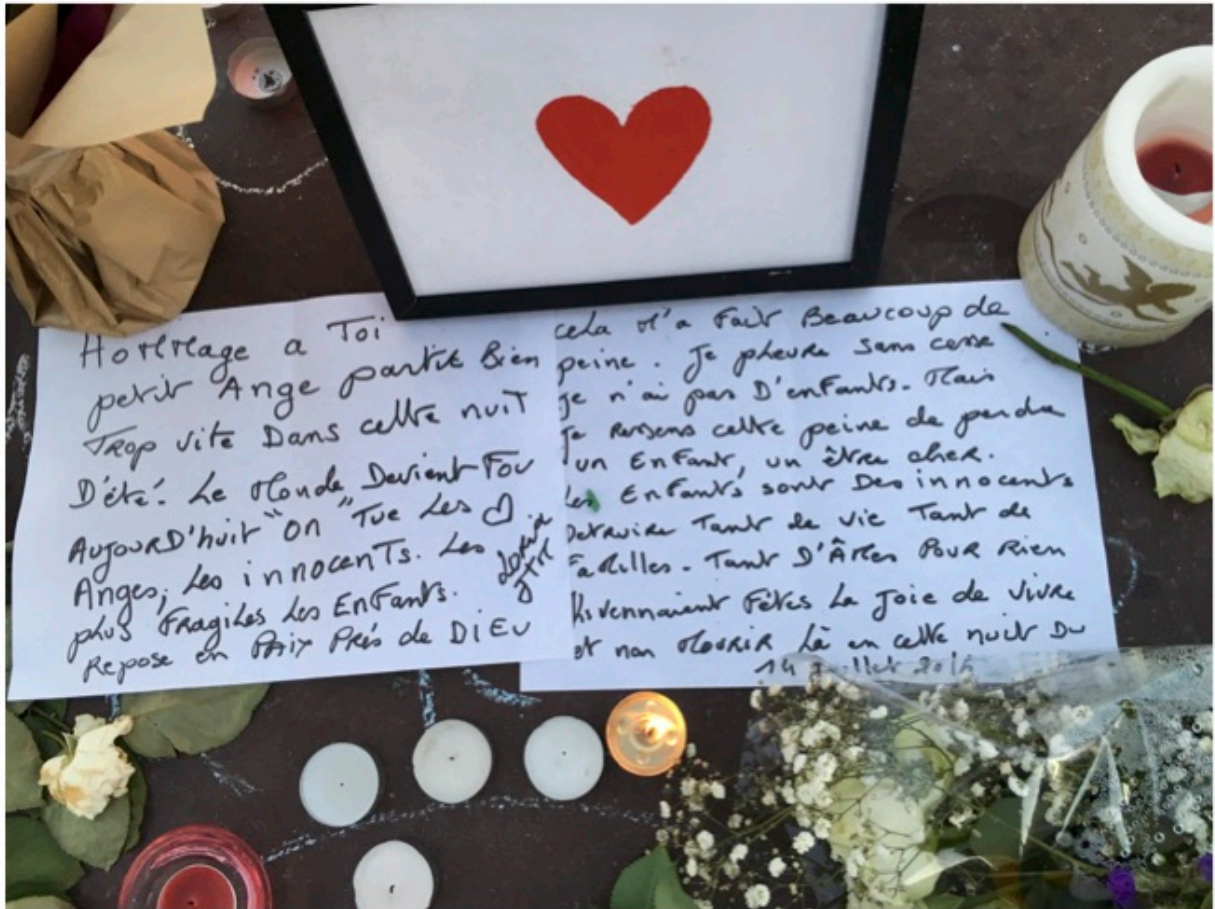 Hommage a Toi
petit Ange partie Bien
Trop vite Dans cette nuit
D'été. Le Monde Devient Fou
AUJOURD'huit "on" Tue Les ♡
Anges, Les innocents. Les
plus Fragiles Les Enfants.
Repose en PAix Près de DIEU
cela M'a Fait Beaucoup de
peine. Je pleure sans cesse
je n'ai pas D'enfants. Mais
Je ressens cette peine de perdre
un Enfant, un être cher.
Les Enfants sont Des innocents
Detruire Tant de vie Tant de
Familles. Tant D'Âmes Pour Rien
Kivennaient Fêtes La Joie de vivre
et non MOURIR Là en cette nuit Du
14 Juillet